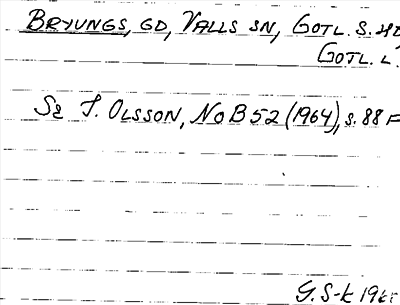 BRYUNGS, GD, VALLS SN, GOTL. S. HD
GOTL. L.
SE I. OLSSON, NOB 52 (1964), S. 88 F
G. S-K